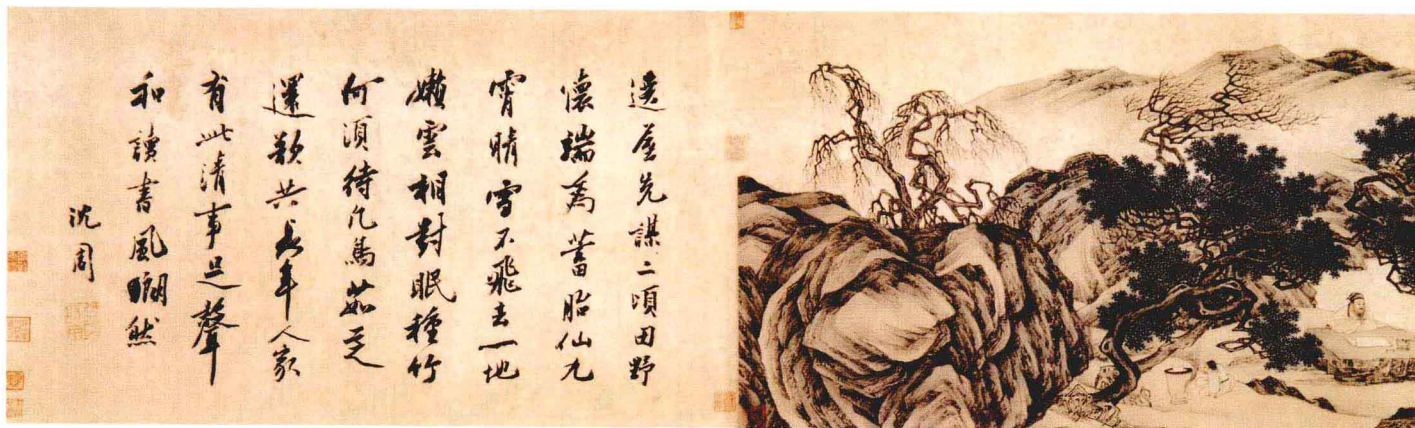 屋先謀二頃田野
懷端爲蓄胎仙九
霄晴雪不飛去一地
嬾雲相對眠種竹
何須待凡鳥茹芝
還欲共長年人家
有此清事足聲
和讀書風然
沈周